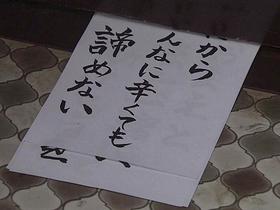 だから
んなに辛くても
諦めない